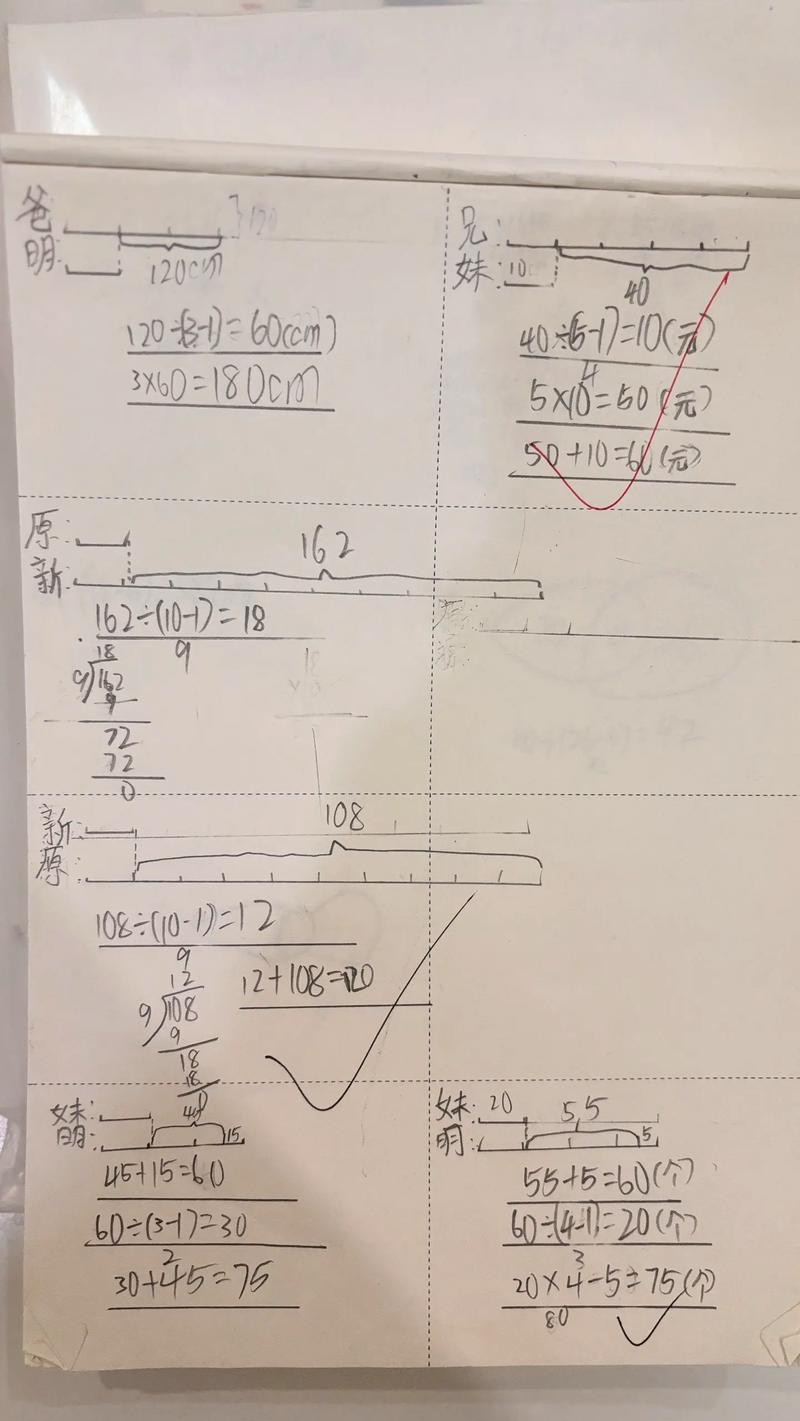 爸
明:
120cm
120÷(3-1)=60(cm)
3×60=180cm
兄:
妹: 10
40
40÷(5-1)=10(元)
4
5×10=50(元)
50+10=60(元)
原:
新:
162
162÷(10-1)=18
9
18
9 162
9
72
72
0
新:
原:
108
108÷(10-1)=12
9
12
9 108
9
18
18
0
12+108=120
妹:
明:
15
45+15=60
60÷(3-1)=30
2
30+45=75
妹: 20
明:
55
5
55+5=60(个)
60÷(4-1)=20(个)
3
20×4-5=75(个)
80